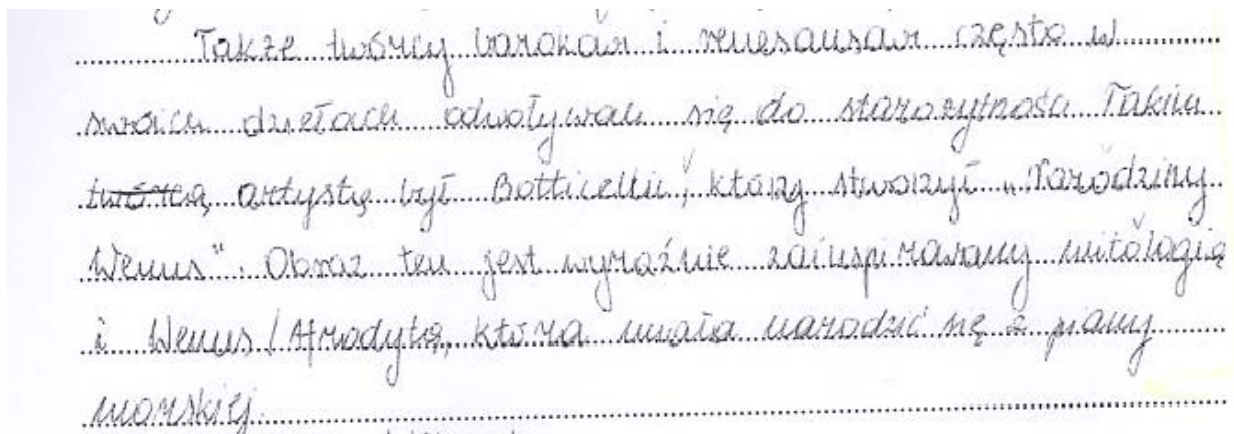 Także twórcy barokow i renesansow często w
swoich dziełach odwoływali się do starożytności Takim
twórcą artystą był Botticellii, który stworzył „Narodziny
Wenus". Obraz ten jest wyraźnie zainspirowany mitologią
i Wenus/Afrodytą, która miała narodzić się z piany
morskiej.